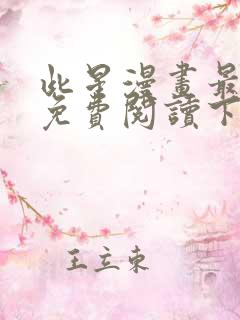 此星漫畫最
免費閱讀下
王立東